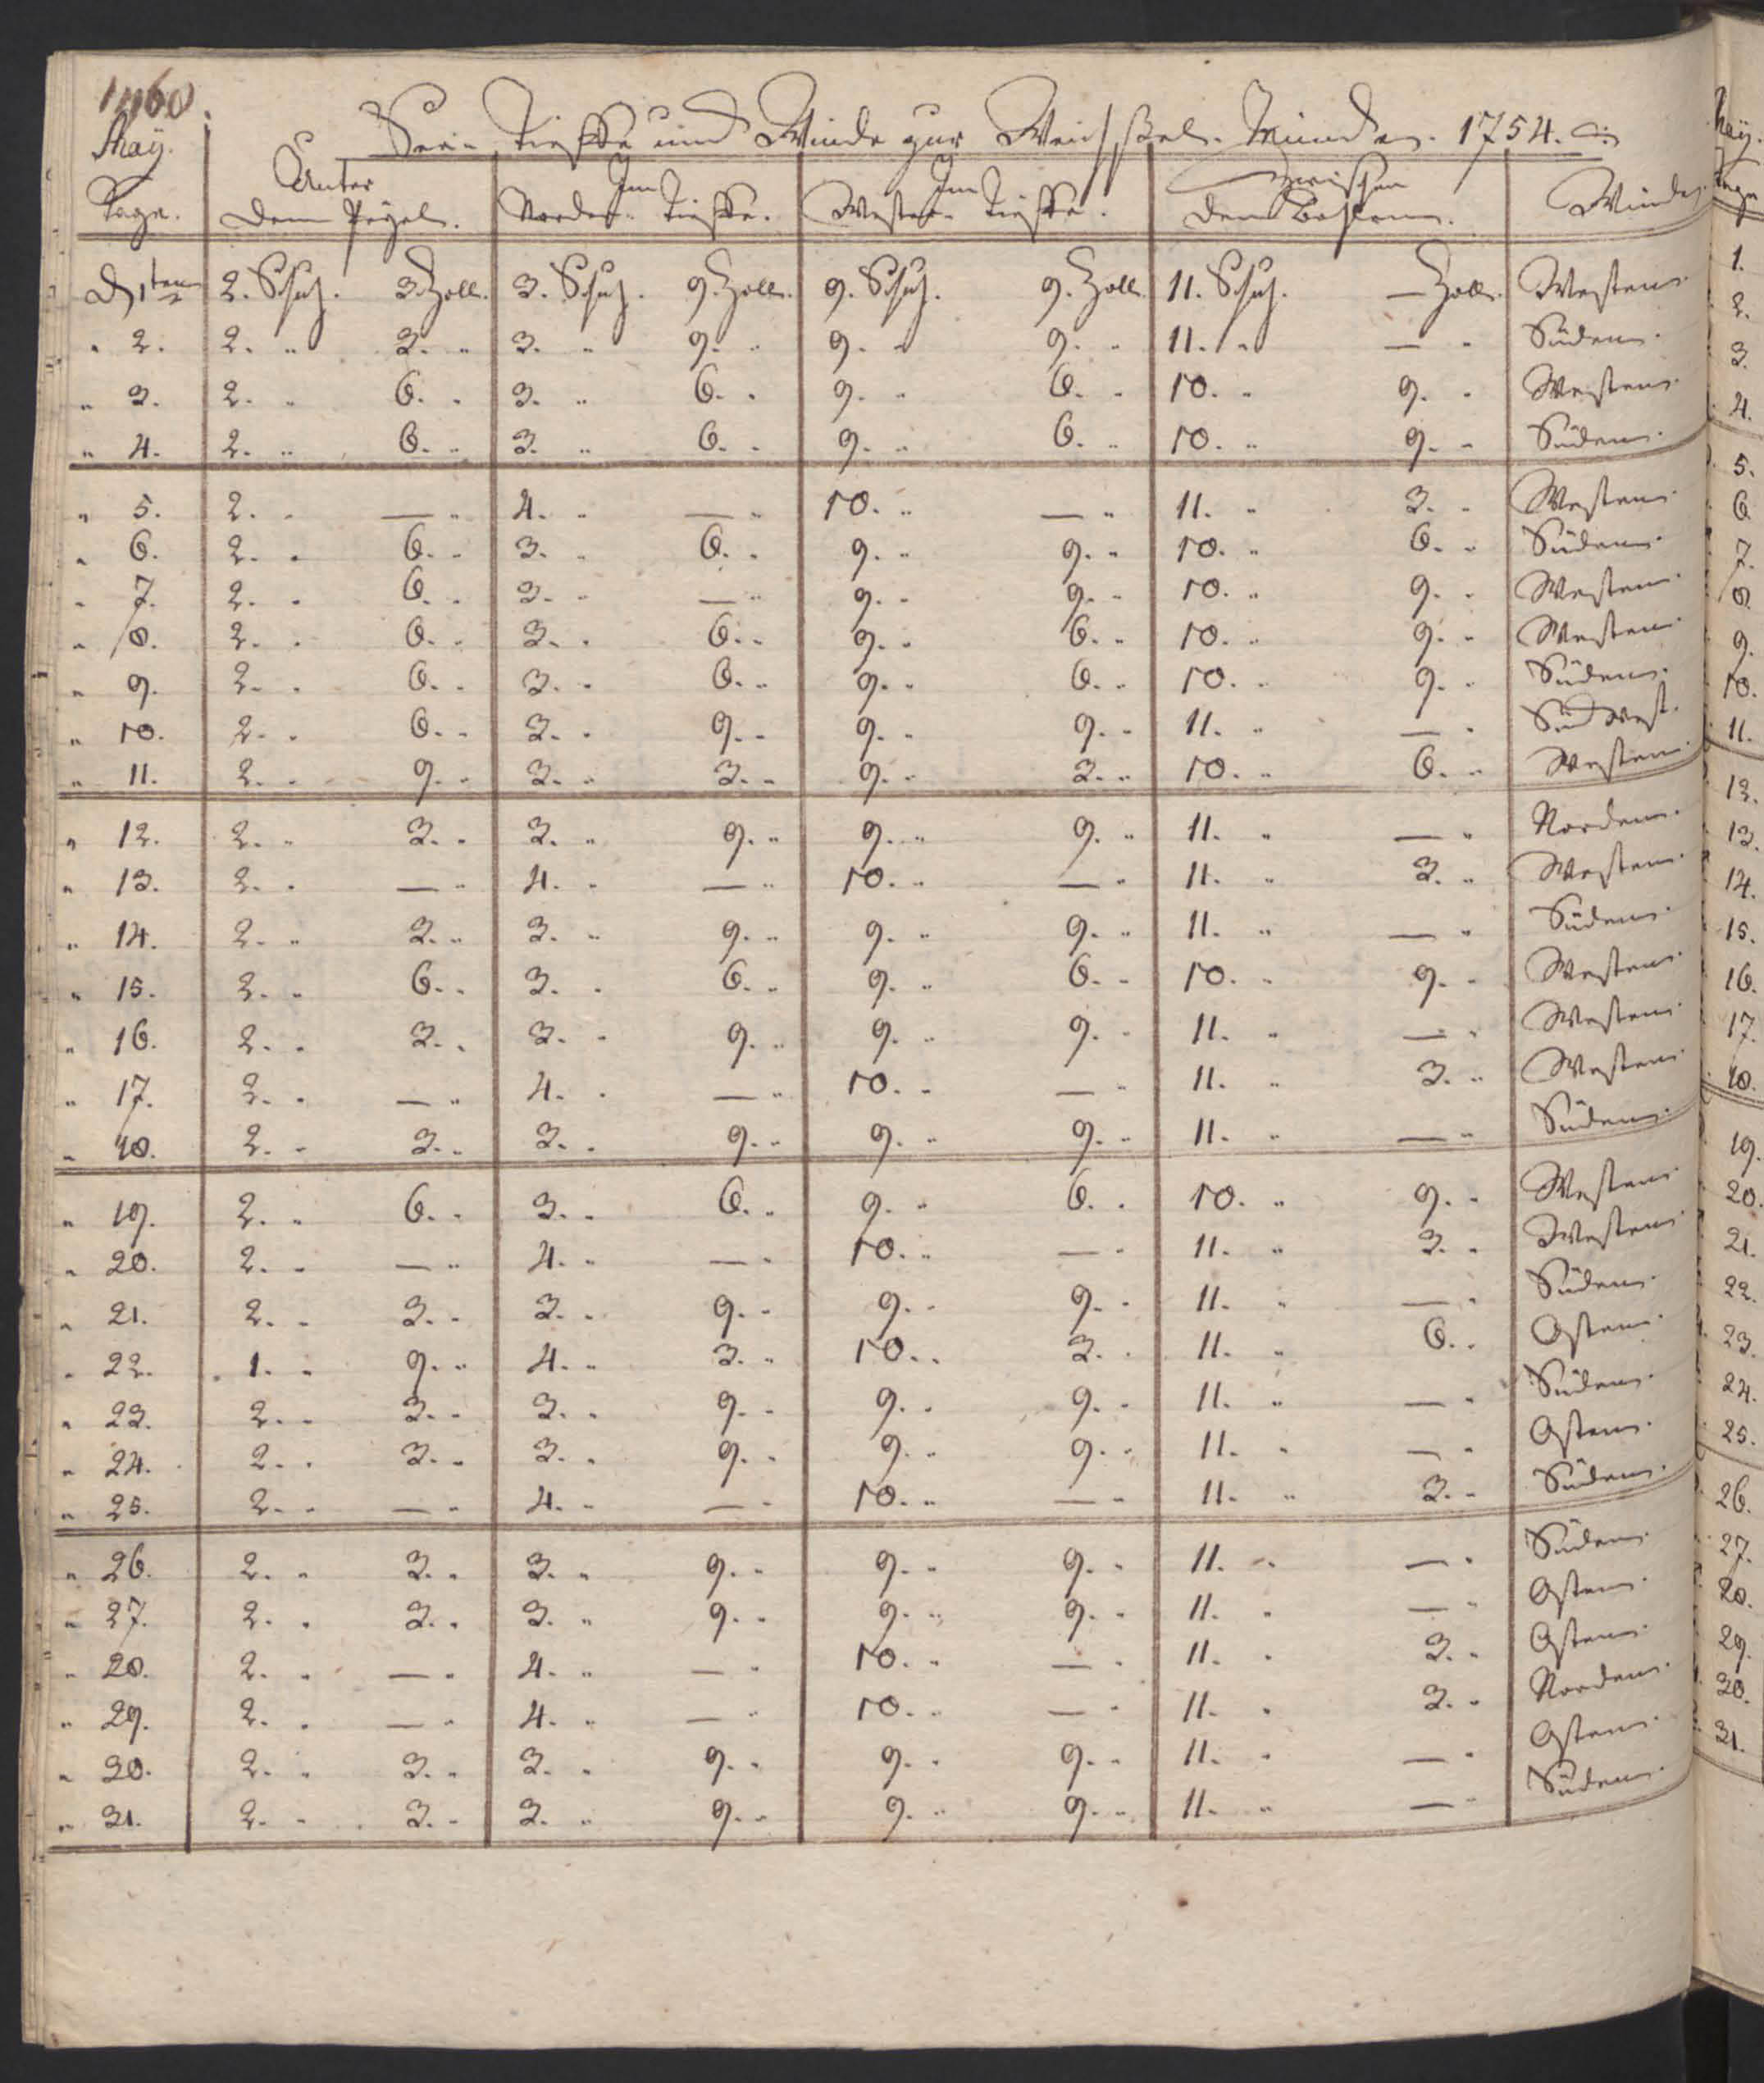 May.
See- Tieffe und Winde zur Weichsel-Münde. 1754.
Tage. Unter dem Pegel. Im Norder-Tieffe. Im Wester-Tieffe. Zwischen den Winde
D 1ten 2. Schuh. 3. Zoll. 3. Schuh. 9. Zoll. 9. Schuh. 9. Zoll. 11. Schuh. — Zoll. Westen.
" 2. 2. " 3. " 3. " 9. " 9. " 9. " 11. " — " Süden.
" 3. 2. " 6. " 3. " 6. " 9. " 6. " 10. " 9. " Westen.
" 4. 2. " 6. " 3. " 6. " 9. " 6. " 10. " 9. " Süden.
" 5. 2. " — " 4. " — " 10. " — " 11. " 3. " Westen.
" 6. 2. " 6. " 3. " 6. " 9. " 9. " 10. " 6. " Süden.
" 7. 2. " 6. " 3. " — " 9. " 9. " 10. " 9. " Westen.
" 8. 2. " 6. " 3. " 6. " 9. " 6. " 10. " 9. " Westen.
" 9. 2. " 6. " 3. " 6. " 9. " 6. " 10. " 9. " Süden.
" 10. 2. " 6. " 3. " 9. " 9. " 9. " 11. " — " Südwest.
" 11. 2. " 9. " 3. " 3. " 9. " 3. " 10. " 6. " Westen.
" 12. 2. " 3. " 3. " 9. " 9. " 9. " 11. " — " Norden.
" 13. 2. " — " 4. " — " 10. " — " 11. " 3. " Westen.
" 14. 2. " 3. " 3. " 9. " 9. " 9. " 11. " — " Süden.
" 15. 2. " 6. " 3. " 6. " 9. " 6. " 10. " 9. " Westen.
" 16. 2. " 3. " 3. " 9. " 9. " 9. " 11. " — " Westen.
" 17. 2. " — " 4. " — " 10. " — " 11. " 3. " Westen.
" 18. 2. " 3. " 3. " 9. " 9. " 9. " 11. " — " Süden.
" 19. 2. " 6. " 3. " 6. " 9. " 6. " 10. " 9. " Westen.
" 20. 2. " — " 4. " — " 10. " — " 11. " 3. " Westen.
" 21. 2. " 3. " 3. " 9. " 9. " 9. " 11. " — " Süden.
" 22. 1. " 9. " 4. " 3. " 10. " 3. " 11. " 6. " Osten.
" 23. 2. " 3. " 3. " 9. " 9. " 9. " 11. " — " Süden.
" 24. 2. " 3. " 3. " 9. " 9. " 9. " 11. " — " Osten.
" 25. 2. " — " 4. " — " 10. " — " 11. " 3. " Süden.
" 26. 2. " 3. " 3. " 9. " 9. " 9. " 11. " — " Süden.
" 27. 2. " 3. " 3. " 9. " 9. " 9. " 11. " — " Osten.
" 28. 2. " — " 4. " — " 10. " — " 11. " 3. " Osten.
" 29. 2. " — " 4. " — " 10. " — " 11. " 3. " Norden.
" 30. 2. " 3. " 3. " 9. " 9. " 9. " 11. " — " Osten.
" 31. 2. " 3. " 3. " 9. " 9. " 9. " 11. " — " Süden.
1.
2.
3.
4.
5.
6.
7.
8.
9.
10.
11.
12.
13.
14.
15.
16.
17.
18.
19.
20.
21.
22.
23.
24.
25.
26.
27.
28.
29.
30.
31.